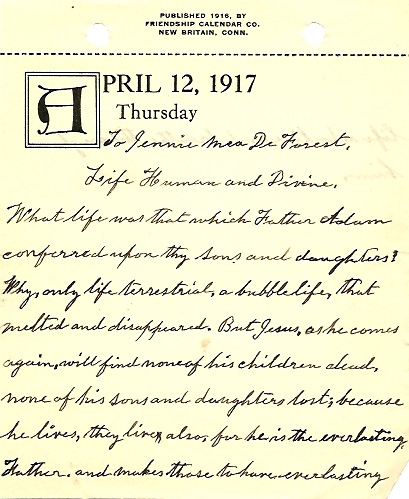 PUBLISHED 1916, BY
FRIENDSHIP CALENDAR CO.
NEW BRITAIN, CONN.
APRIL 12, 1917
Thursday
To Jennie Mea De Forest.
Life Human and Divine.
What life was that which Father Adam
conferred upon thy sons and daughters?
Why, only life terrestrial, a bubble life, that
melted and disappeared. But Jesus, as he comes
again, will find none of his children dead,
none of his sons and daughters lost; because
he lives, they live, also, for he is the everlasting
Father. and makes those to have everlasting